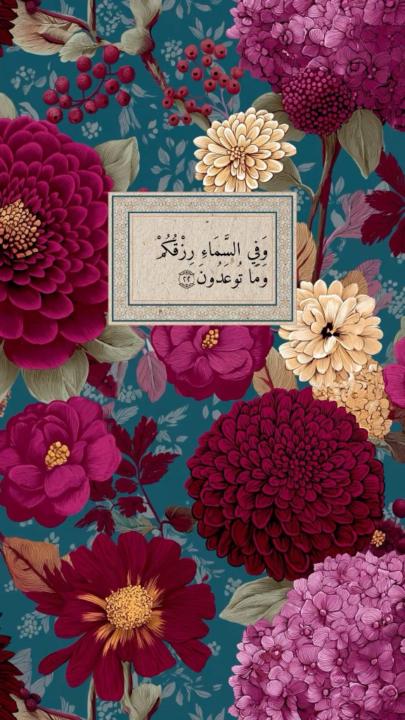 وَفِي السَّمَاءِ رِزْقُكُمْ
وَمَا تُوعَدُونَ ﴿٢٢﴾